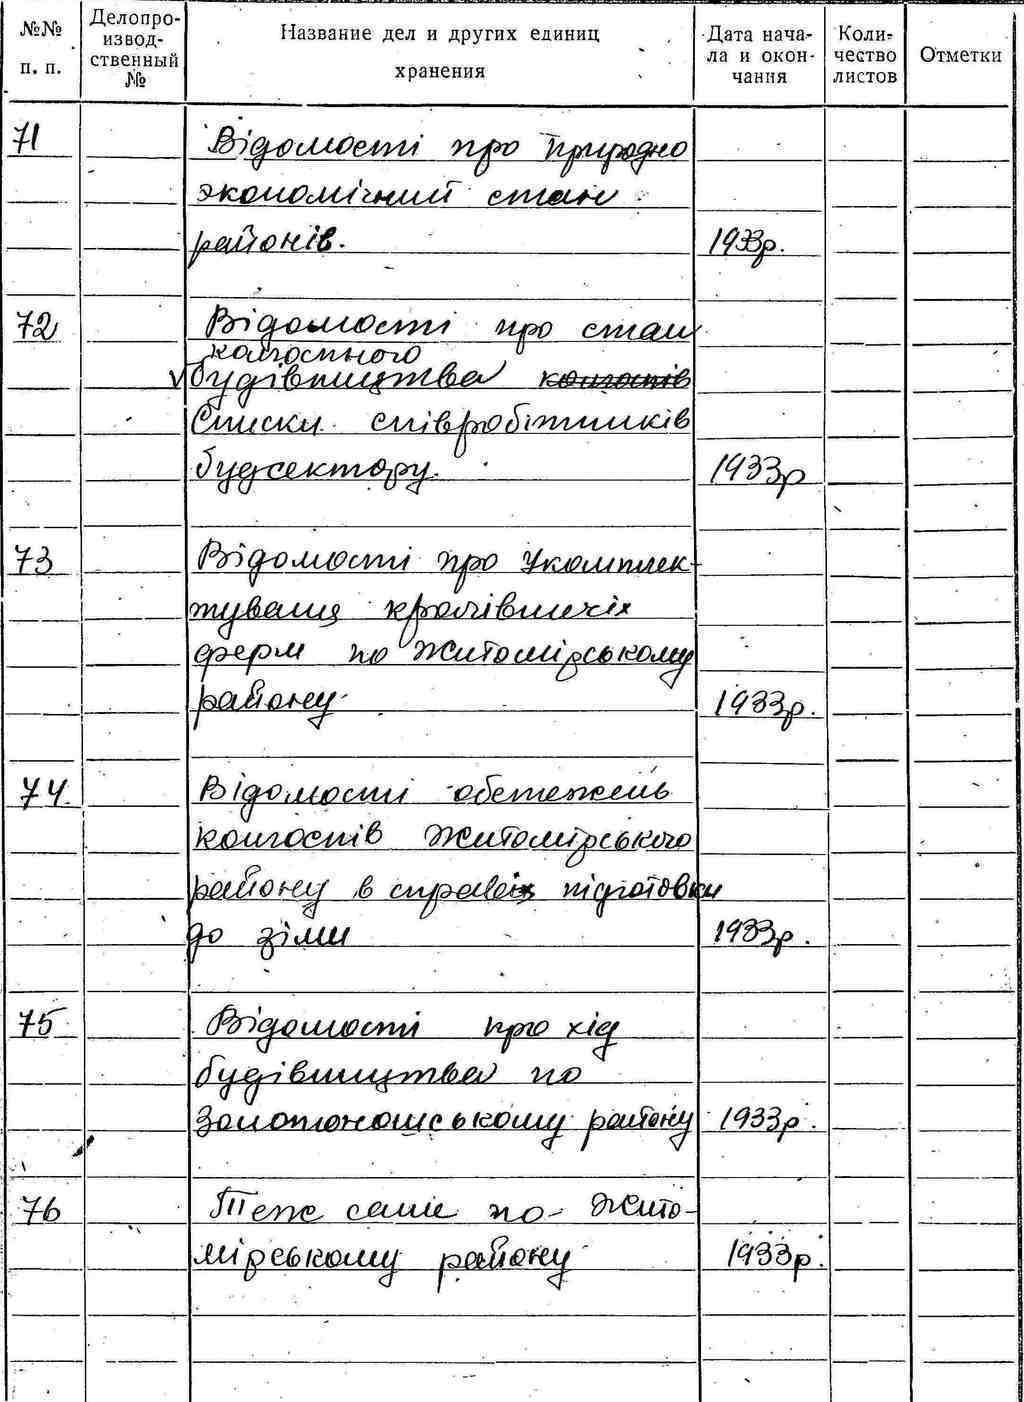 №№ п. п.
Делопро-
извод-
ственный
№
Название дел и других единиц
хранения
Дата нача-
ла и окон-
чания
Коли-
чество
листов
Отметки
71 Відомості про природно
экономічний стан
районів. 1933р.
72 Відомості про стан
колгоспного
будівництва колгоспів
Списки співробітників
будсектору. 1933р
73 Відомості про Укомплек-
тування кролівничіх
ферм по Житомірському
району 1933р.
74 Відомості обстежень
колгоспів Житомірського
району в справі підготовки
до зіми 1933р.
75 Відомості про хід
будівництва по
Золотоношському району 1933р.
76 Теж саме по Жито-
мірському району 1933р.